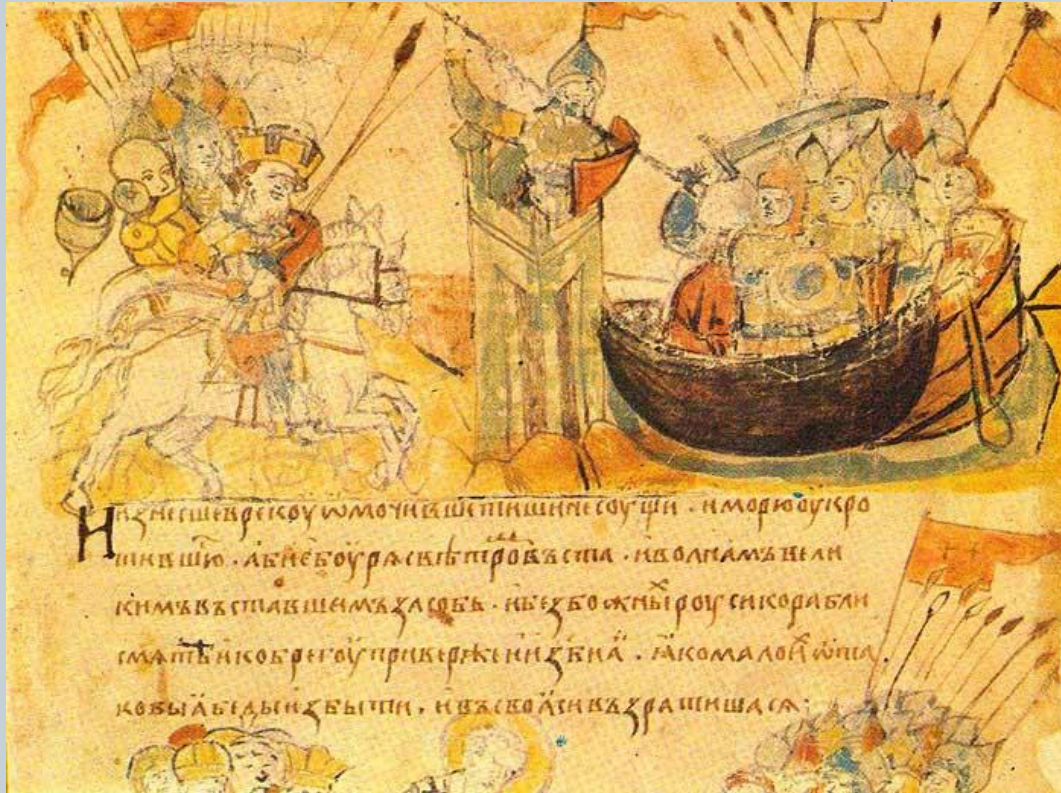 Изнесшеврекоуѡмочившетишинесоущи · иморюоукро
тившюⷭ · абиебоурѧсвѣтроⷨвъста · иволнамъвели
кимъвъставшемъзасобь · ибезбожныⷯроусикорабли
смѧтеикобрегоуприверженизбиа · ꙗкомалоиⷯѿта
ковыꙗбедыизбыти · ивъсвоꙗсивъзратишасѧ: